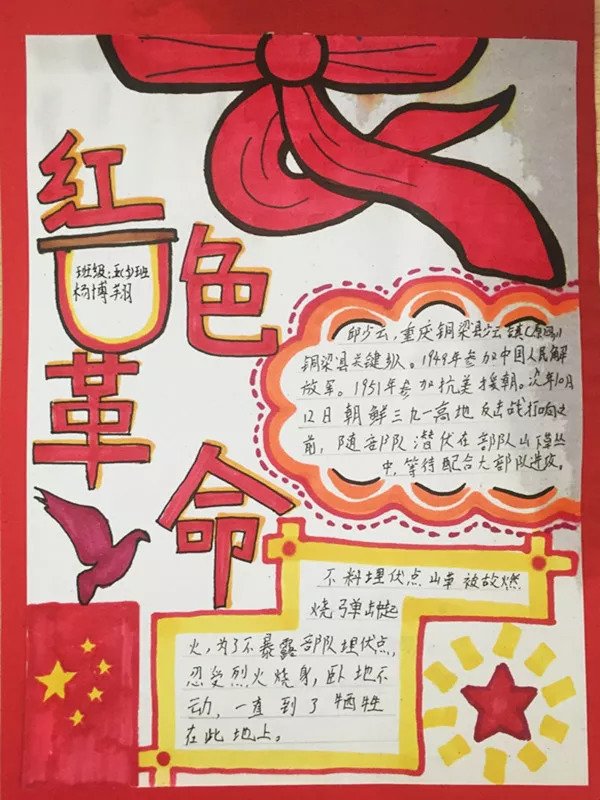 红色革命
班级:五少班
杨博翔
邱少云,重庆铜梁县少云镇(原四川
铜梁县关键队。1949年参加中国人民解
放军。1951年参加抗美援朝。次年10月
12日朝鲜三九一高地反击战打响之
前,随部队潜伏在部队山下草丛
中,等待配合大部队进攻。
不料埋伏点山草被敌燃
烧弹击起
火,为了不暴露部队埋伏点,
忍受烈火烧身,卧地不
动,一直到了牺牲
在此地上。